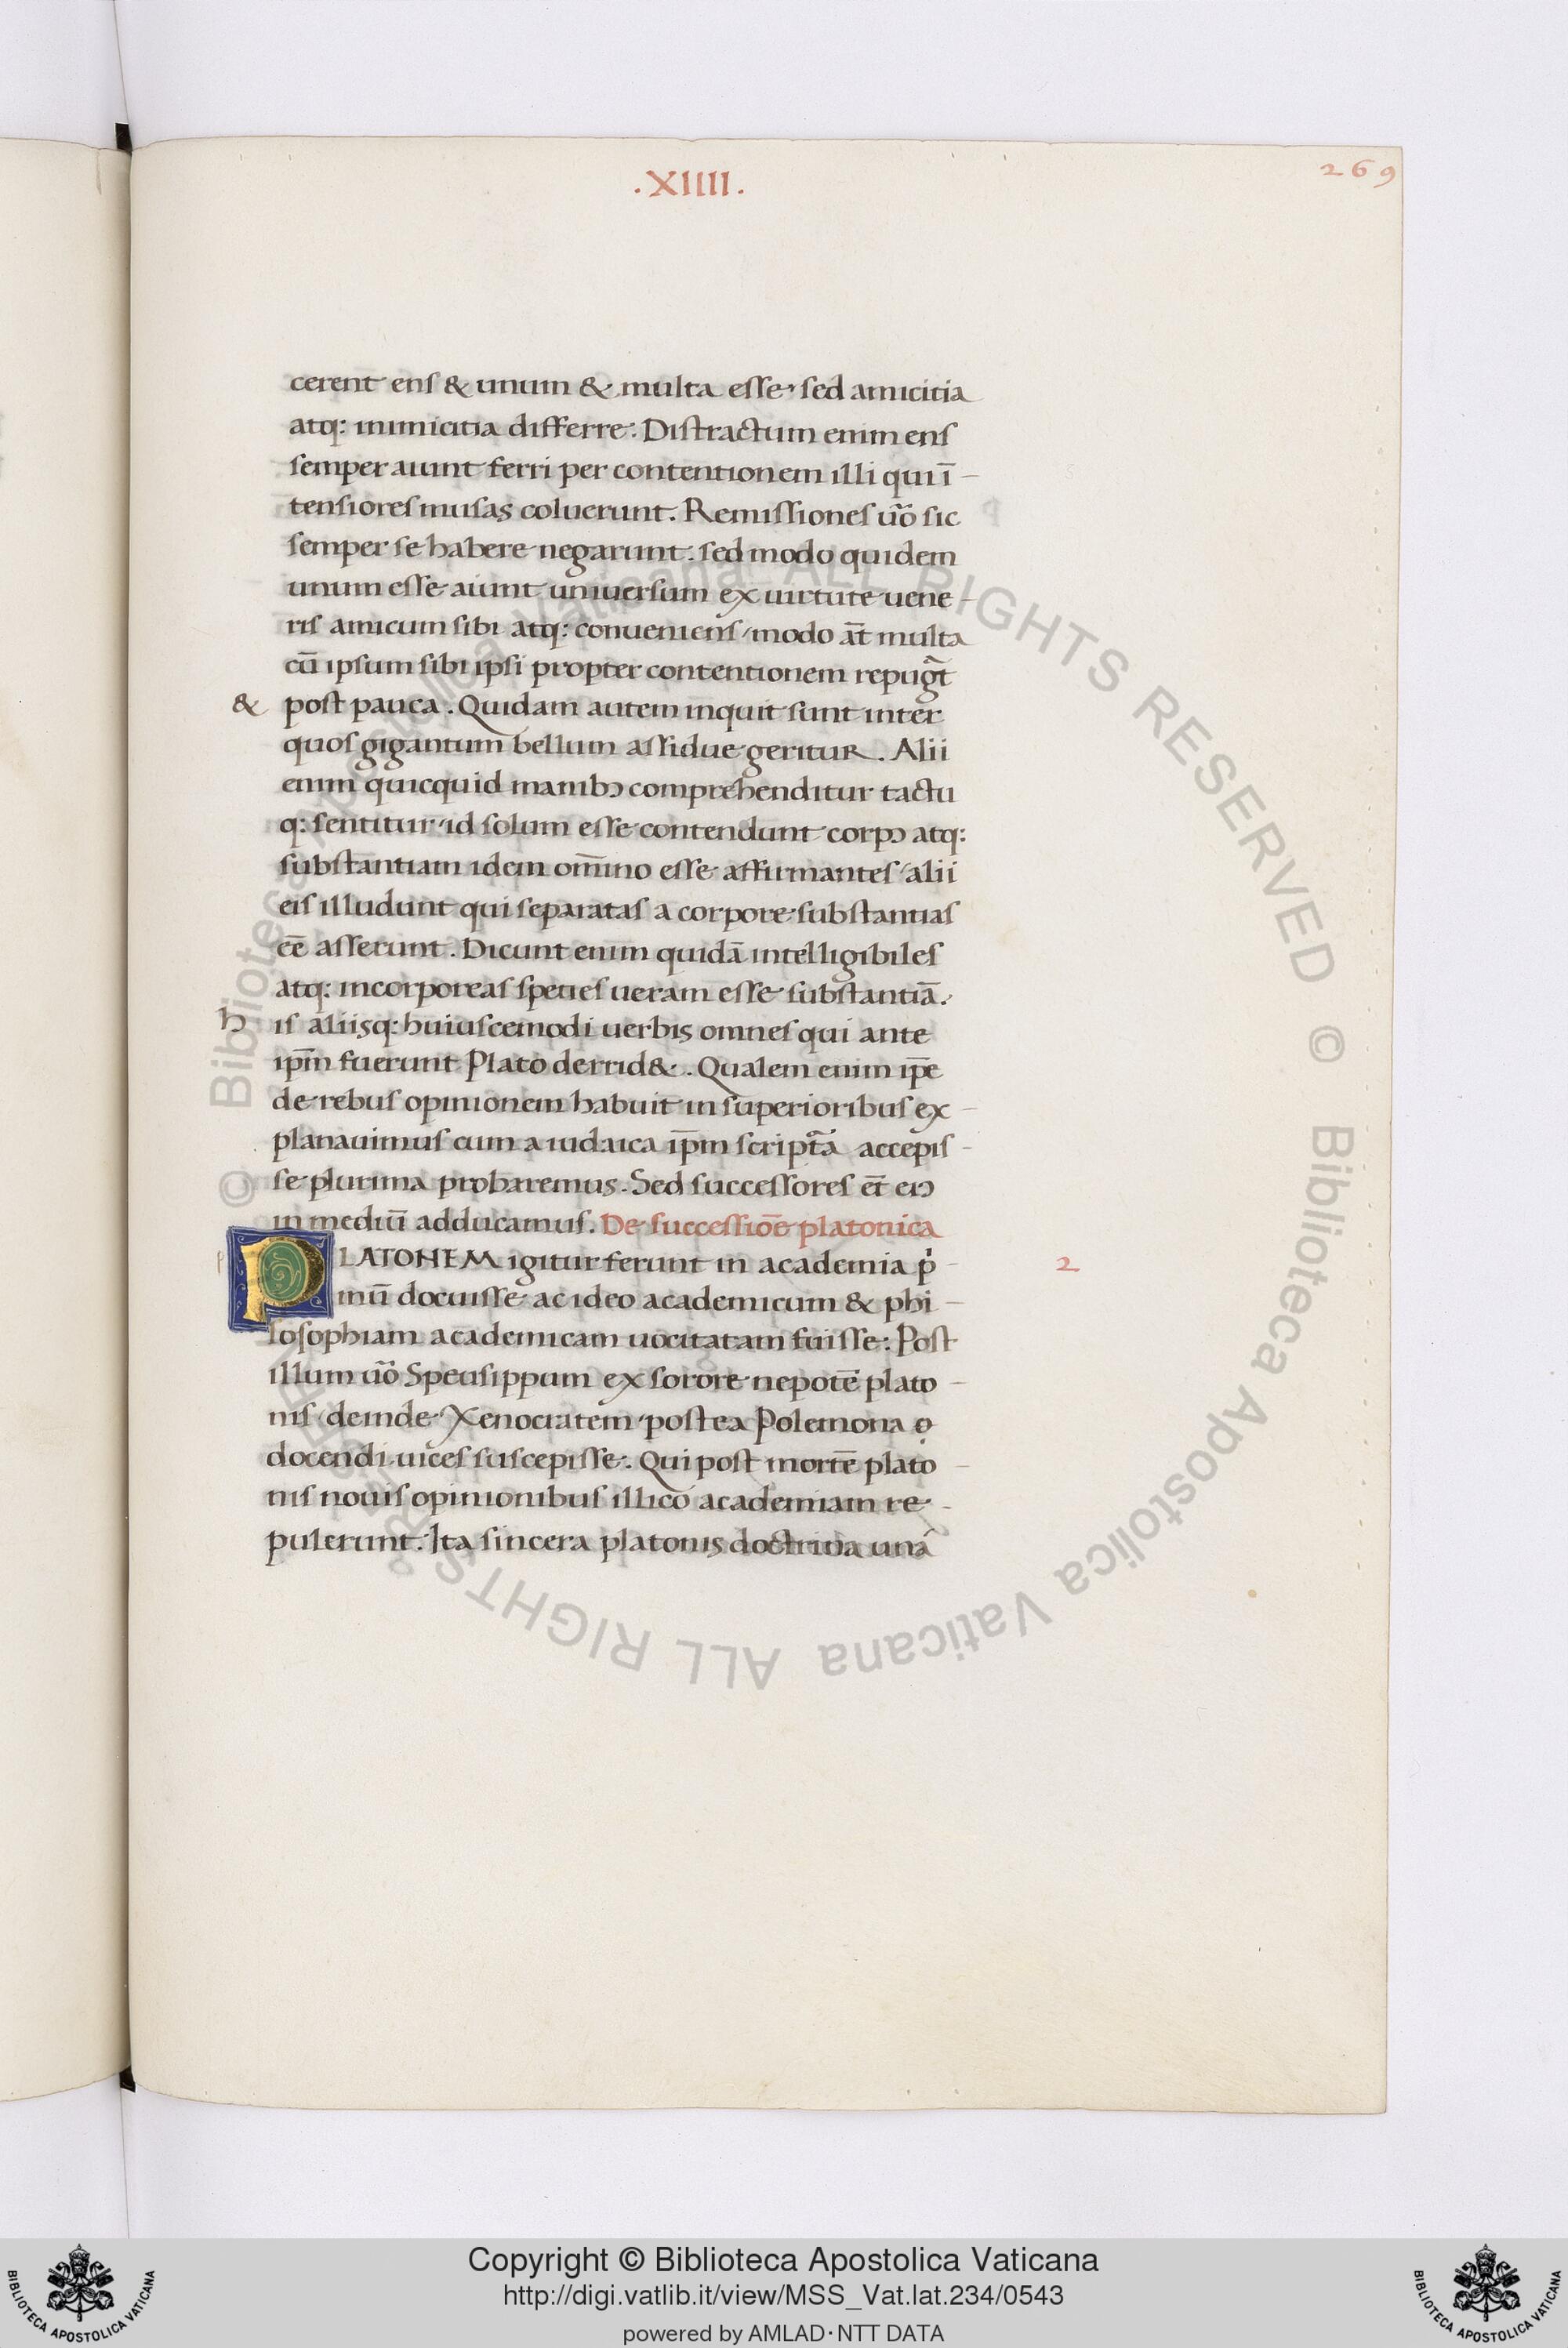 .XIIII.
269
cerent ens & unum & multa esse· sed amicitia
atq: inimicitia differre: Distractum enim ens
semper aiunt ferri per contentionem illi qui ī-
tensiores musas coluerunt. Remissiones ũo sic
semper se habere negarunt: sed modo quidem
unum esse aiunt universum ex virtute uene-
ris amicum sibi atq: conueniens / modo at̄ multa
cū ipsum sibi ipsi propter contentionem repug̃t
& post pauca. Quidam autem inquit sunt inter
quos gigantum bellum assidue geritur. Alii
enim quicquid manibꝫ comprehenditur tactu
q: sentitur· id solum esse contendunt corpꝫ atq:
substantiam idem om̄ino esse affirmantes / alii
eis illudunt qui separatas a corpore substantias
eē asserunt. Dicunt enim quidā intelligibiles
atq: incorporeas species ueram esse substantiā.
his aliisq: huiuscemodi uerbis omnes qui ante
ip̄m fuerunt Plato derrid&. Qualem enim ip̄e
de rebus opinionem habuit in superioribus ex-
planauimus cum a iudaica ip̄m script̃a accepis-
se plurima probaremus. Sed successores et̄ eiꝰ
in mediū adducamus. De successiōe platonica
PLATONEM igitur ferunt in academia p̍- 2
mū docuisse ac ideo academicum & phi-
losophiam academicam uocitatam fuisse: Post
illum ũo Speusippum ex sorore nepotē plato-
nis / deinde Xenocratem· postea Polemona ọ
docendi uices suscepisse: Qui post mortē plato-
nis nouis opinionibus illico academiam re-
pulerunt. Ita sincera platonis doctrina unā
© Biblioteca Apostolica Vaticana ALL RIGHTS RESERVED © Biblioteca Apostolica Vaticana ALL RIGHTS RESERVED
Copyright © Biblioteca Apostolica Vaticana
http://digi.vatlib.it/view/MSS_Vat.lat.234/0543
powered by AMLAD·NTT DATA
BIBLIOTECA APOSTOLICA VATICANA
BIBLIOTECA APOSTOLICA VATICANA